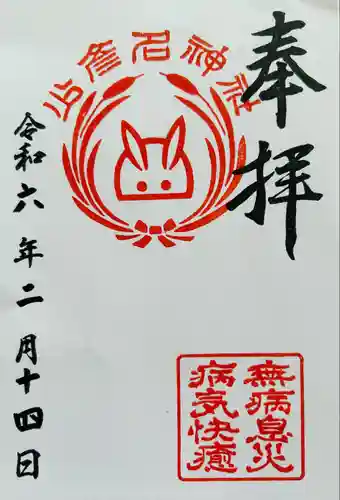 奉拝
少彦名神社
令和六年二月十四日
無病息災
病気快癒